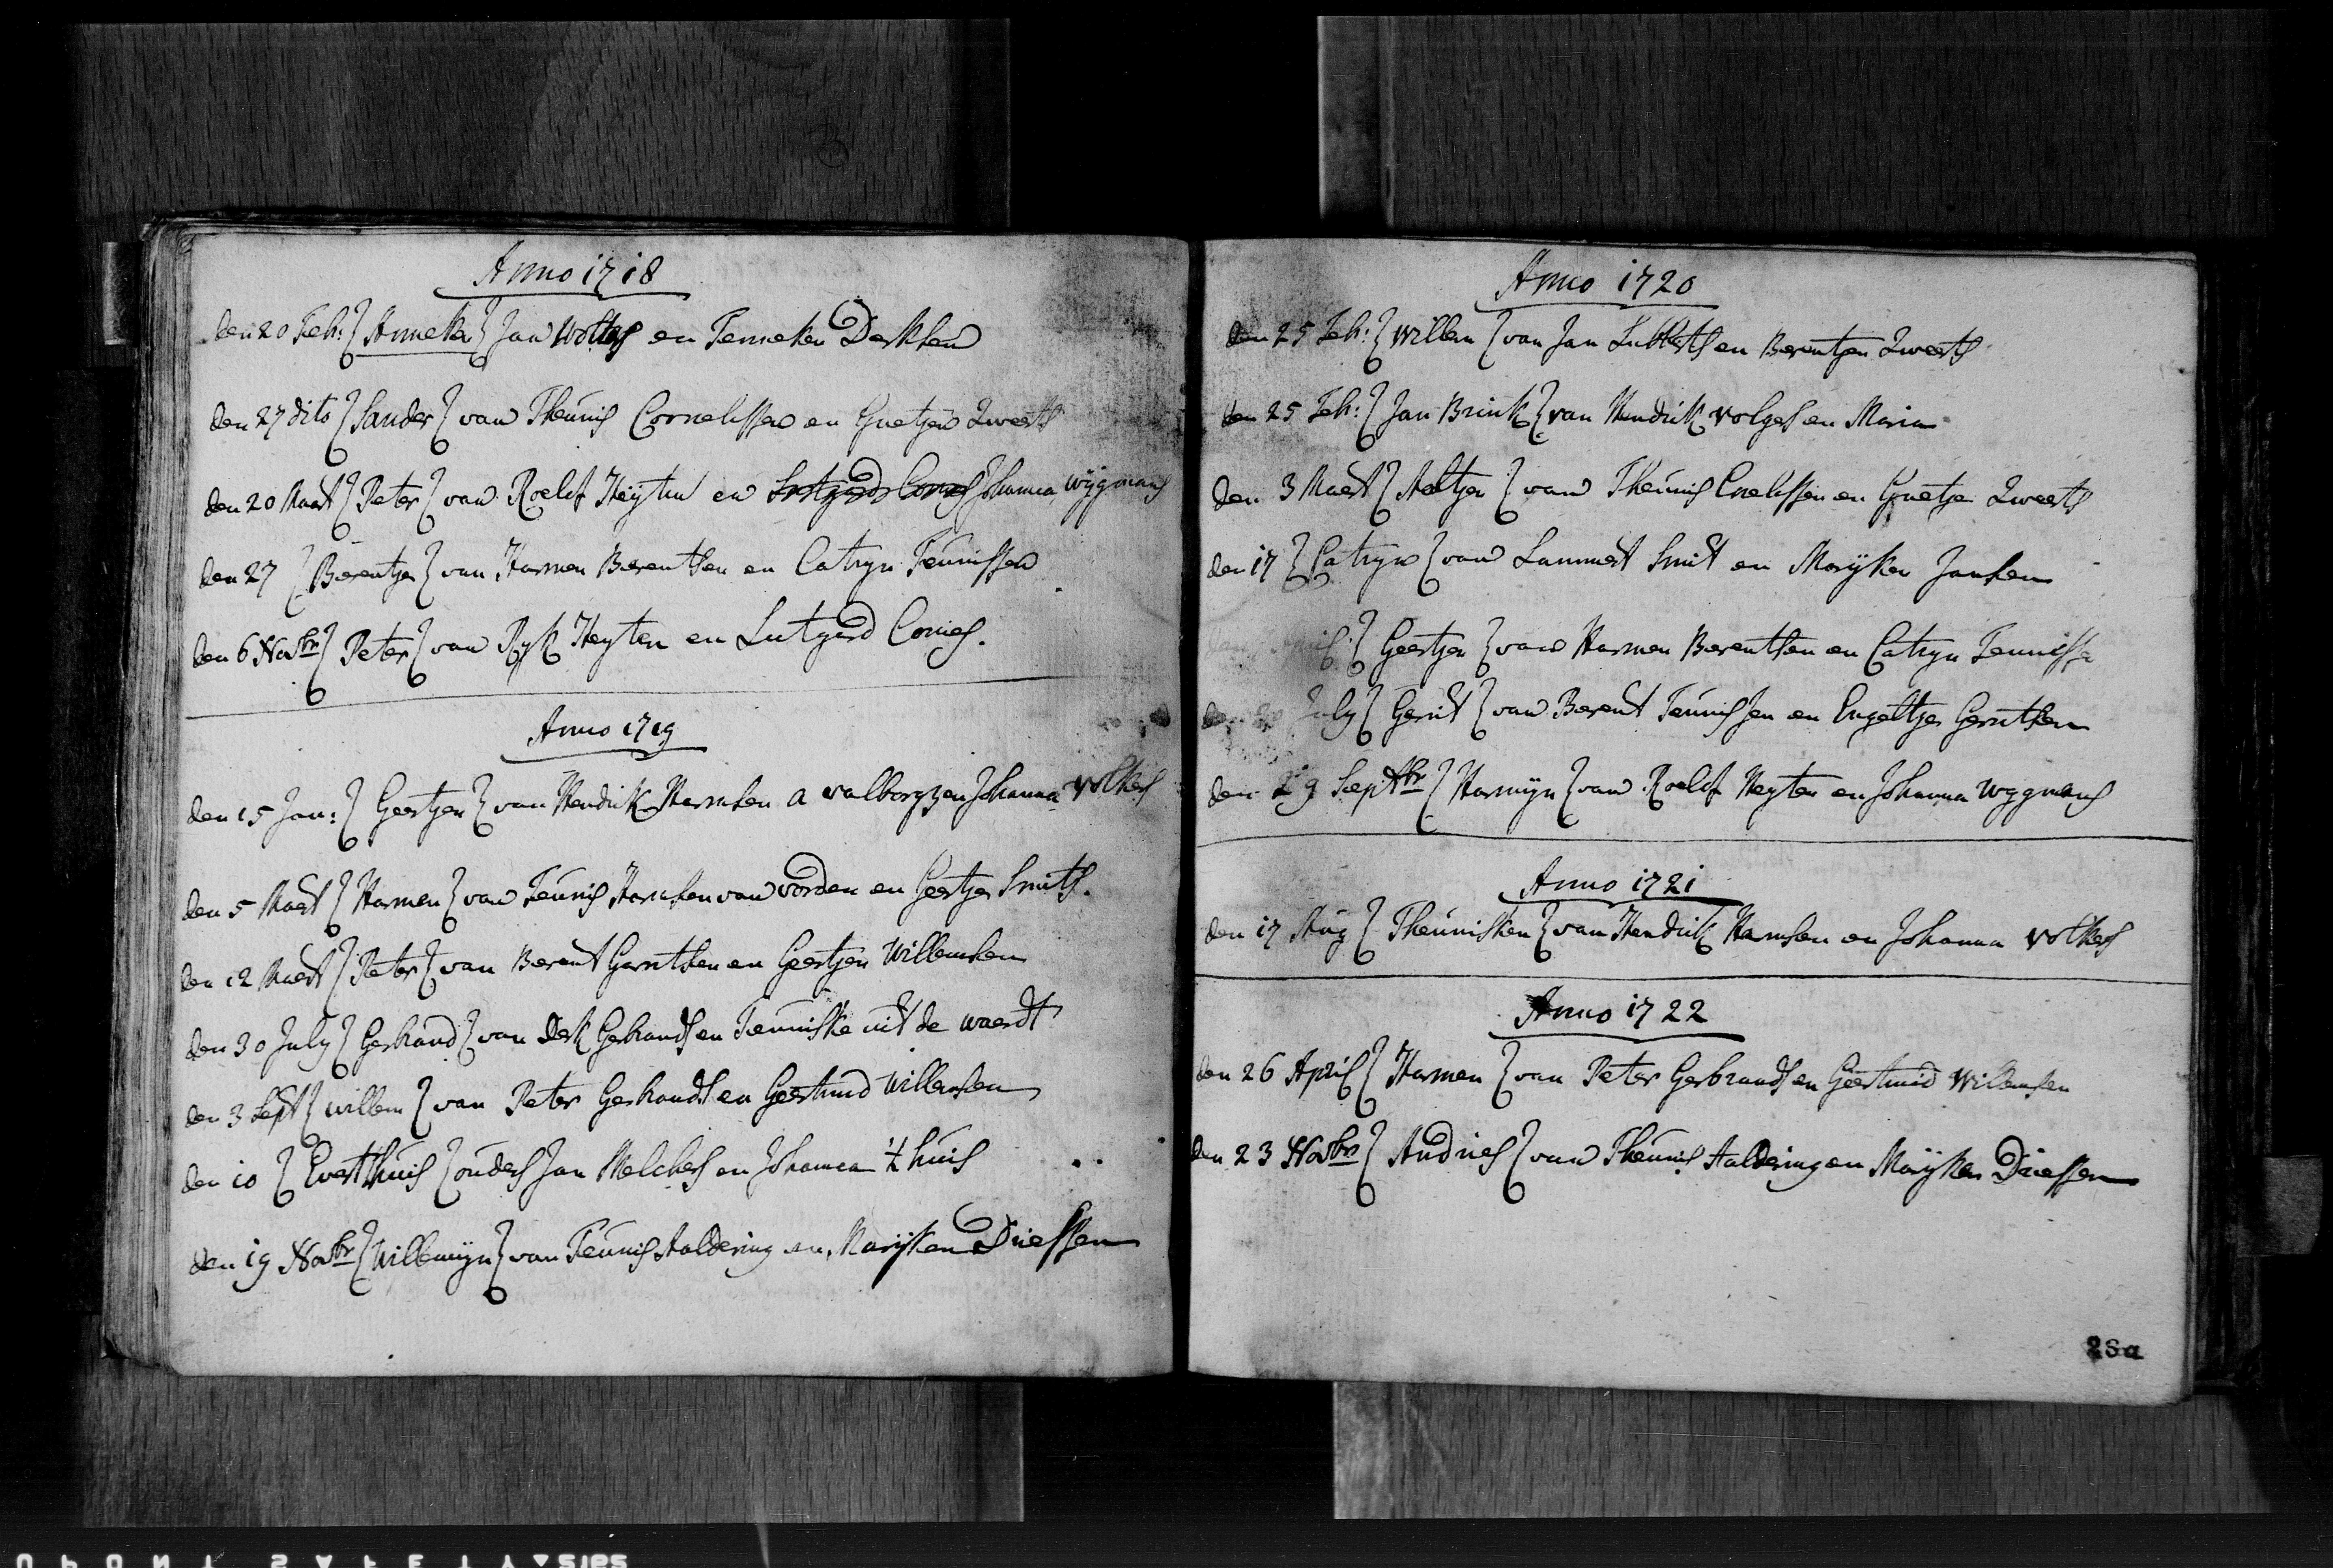 Anno 1718
den 20 Feb: Anneken Jan Wolters en Jenneken Derksen
den 27 dito Sander van Theunis Cornelissen en Gnetjen Zweerts
den 20 Maert Peter van Roelof Heyten en Lutgerd Cornes Johanna Wygmans
den 27 Berentjen van Harmen Berentsen en Catryn Teunissen
den 6 Novbr Peter van Ryk Heyten en Lutgerd Cornes.
Anno 1719
den 15 Jan: Geertjen van Hendrik Harmsen a valborg en Johanna volkers
den 5 Maert Harmen van Teunis Harmsen van vorden en Geertjen Smits.
den 12 Maert Peter van Berent Gerritsen en Geertjen Willemsen
den 30 July Gerbrand van Derk Gerbrands en Teuniske uit de waerdt
den 3 Sept willem van Peter Gerbrands en Geertruid willemsen
den 10 Evert Thuis ouders Jan Melchers en Johanna 't huis
den 19 Novbr Willemijn van Teunis Aaldering en Marijken Driessen
Anno 1720
den 25 Feb: Willem van Jan Lubberts en Berentjen Zweerts
den 25 Feb: Jan Brink van Hendrik volgers en Maria
den 3 Maert Aeltjen van Theunis Cnelissen en Gnetjen Zweerts
den 17 Catryn van Lammert Smit en Marijken Jansen
Geertjen van Harmen Berentsen en Catryn Teunisse
July Gerrit van Berent Teunissen en Engeltjen Gerritsen
den 29 Septbr Harmijn van Roelof Heyten en Johanna Wygmans
Anno 1721
den 17 Aug Theunisken van Hendrik Harmsen en Johanna volkers
Anno 1722
den 26 April Harmen van Peter Gerbrands en Geertruid Willemsen
den 23 Novbr Andries van Theunis Aaldering en Maryken Driessen
28a